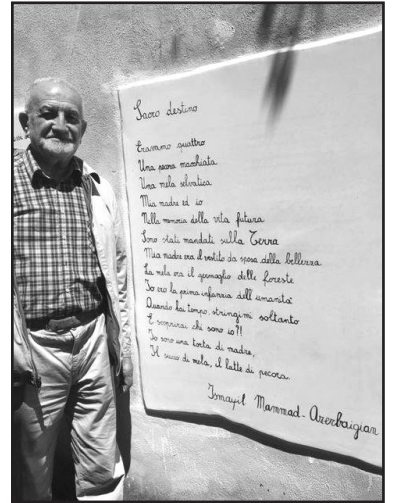 Sacro destino
Eravamo quattro
Una pecora macchiata
Una mela selvatica
Mia madre ed io
Nella memoria della vita futura
Sono stati mandati sulla Terra
Mia madre era il vestito da sposa della bellezza
La mela era il germoglio delle foreste
Io ero la prima infanzia dell'umanità
Quando hai tempo, stringimi soltanto
E scoprirai chi sono io?!
Io sono una torta di madre,
Il succo di mela, il latte di pecora.
Ismayil Mammad - Azerbaigian